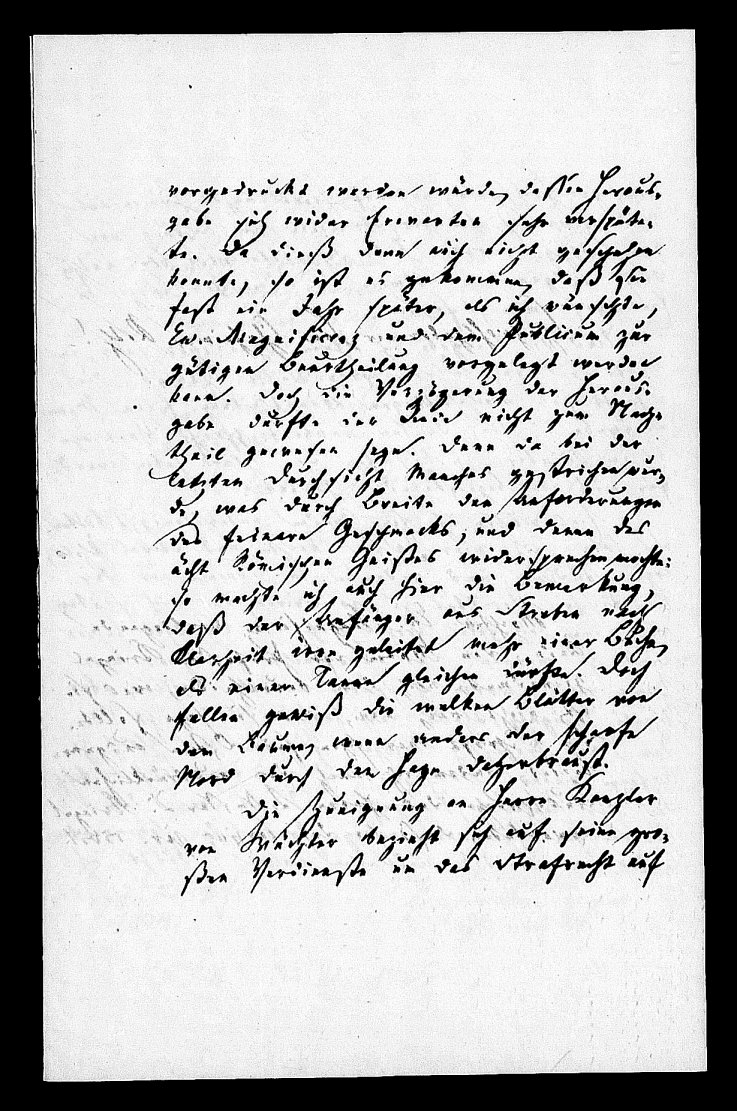 vorgedruckt werden würde, dessen Heraus-
gabe sich wider Erwarten sehr verspäte-
te. Da dieß denn auch nicht geschehen
konnte, so ist es gekommen, daß sie
fast ein Jahr später, als ich wünschte,
Ew. Magnificenz und dem Publicum zur
gütigen Beurtheilung vorgelegt werden
kann. Doch die Verzögerung der Heraus-
gabe durfte der nicht zum Nach-
theil gewesen seyn. Denn da bei der
letzten Durchsicht Manches gestrichen wur-
de, was durch Breite den Anforderungen
des feinern Geschmacks, und denen des
ächt Römischen Geistes widersprechen mochte:
so machte ich auch hier die Bemerkung,
daß der Anfänger aus Streben nach
Klarheit irre geleitet mehr einer Buche,
als einer Tanne gleichen dürfte. Doch
fallen gewiß die welken Blätter von
dem Baume, wenn anders der scharfe
Nord durch den Hayn daherbraust.
Die Zueignung an Herrn Kanzler
von Wächter bezieht sich auf seine gro-
ßen Verdienste um das Strafrecht auf